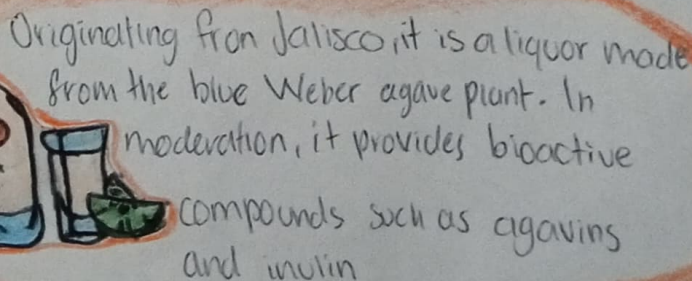 Originating fron Jalisco, it is a liquor made
from the blue Weber agave plant. In
moderation, it provides bioactive
compounds such as agavins
and inulin